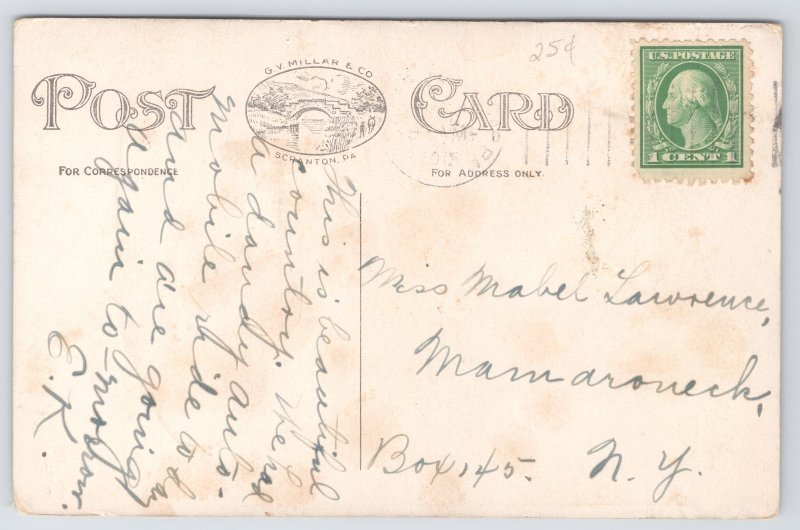 25¢
U.S. POSTAGE
1 CENT 1
G.V. MILLAR & CO
SCRANTON, PA
POST CARD
FOR CORRESPONDENCE
FOR ADDRESS ONLY.
This is beautiful
country. We had
a dandy auto-
mobile ride to day
and are going
again to-morrow.
E. K.
Miss Mabel Lawrence,
Mamaroneck,
Box 145. N. Y.